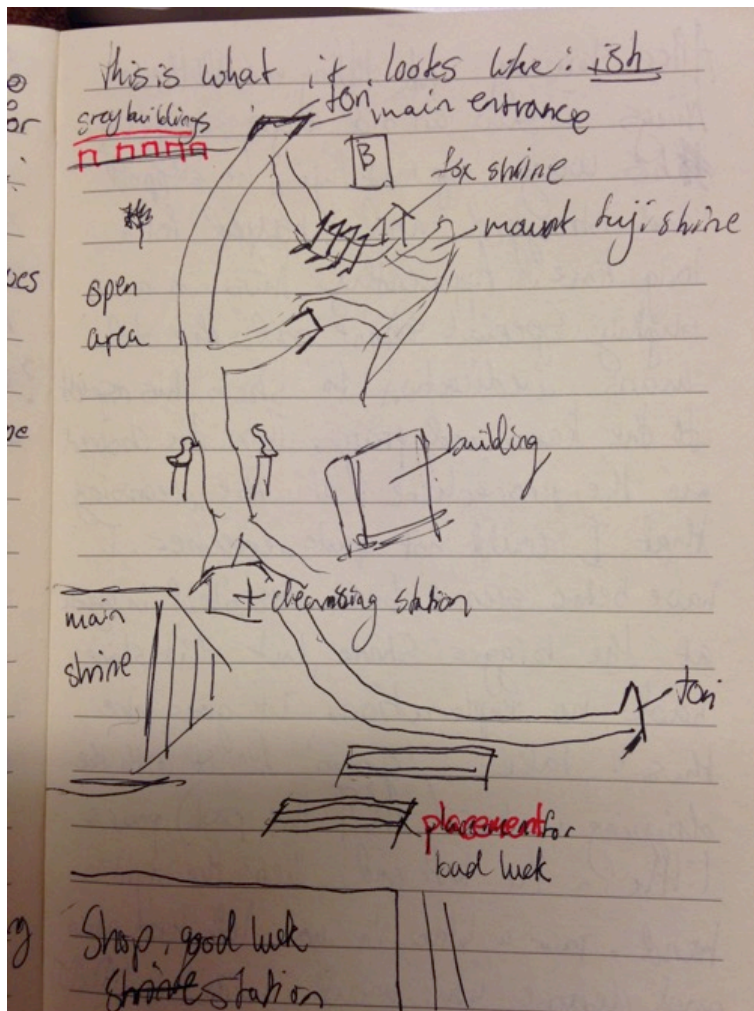 This is what it looks like: ish
tori main entrance
grey buildings
B
fox shrine
mount fuji shrine
open
area
building
cleansing station
main
shrine
tori
placement for
bad luck
Shop, good luck
shrine station